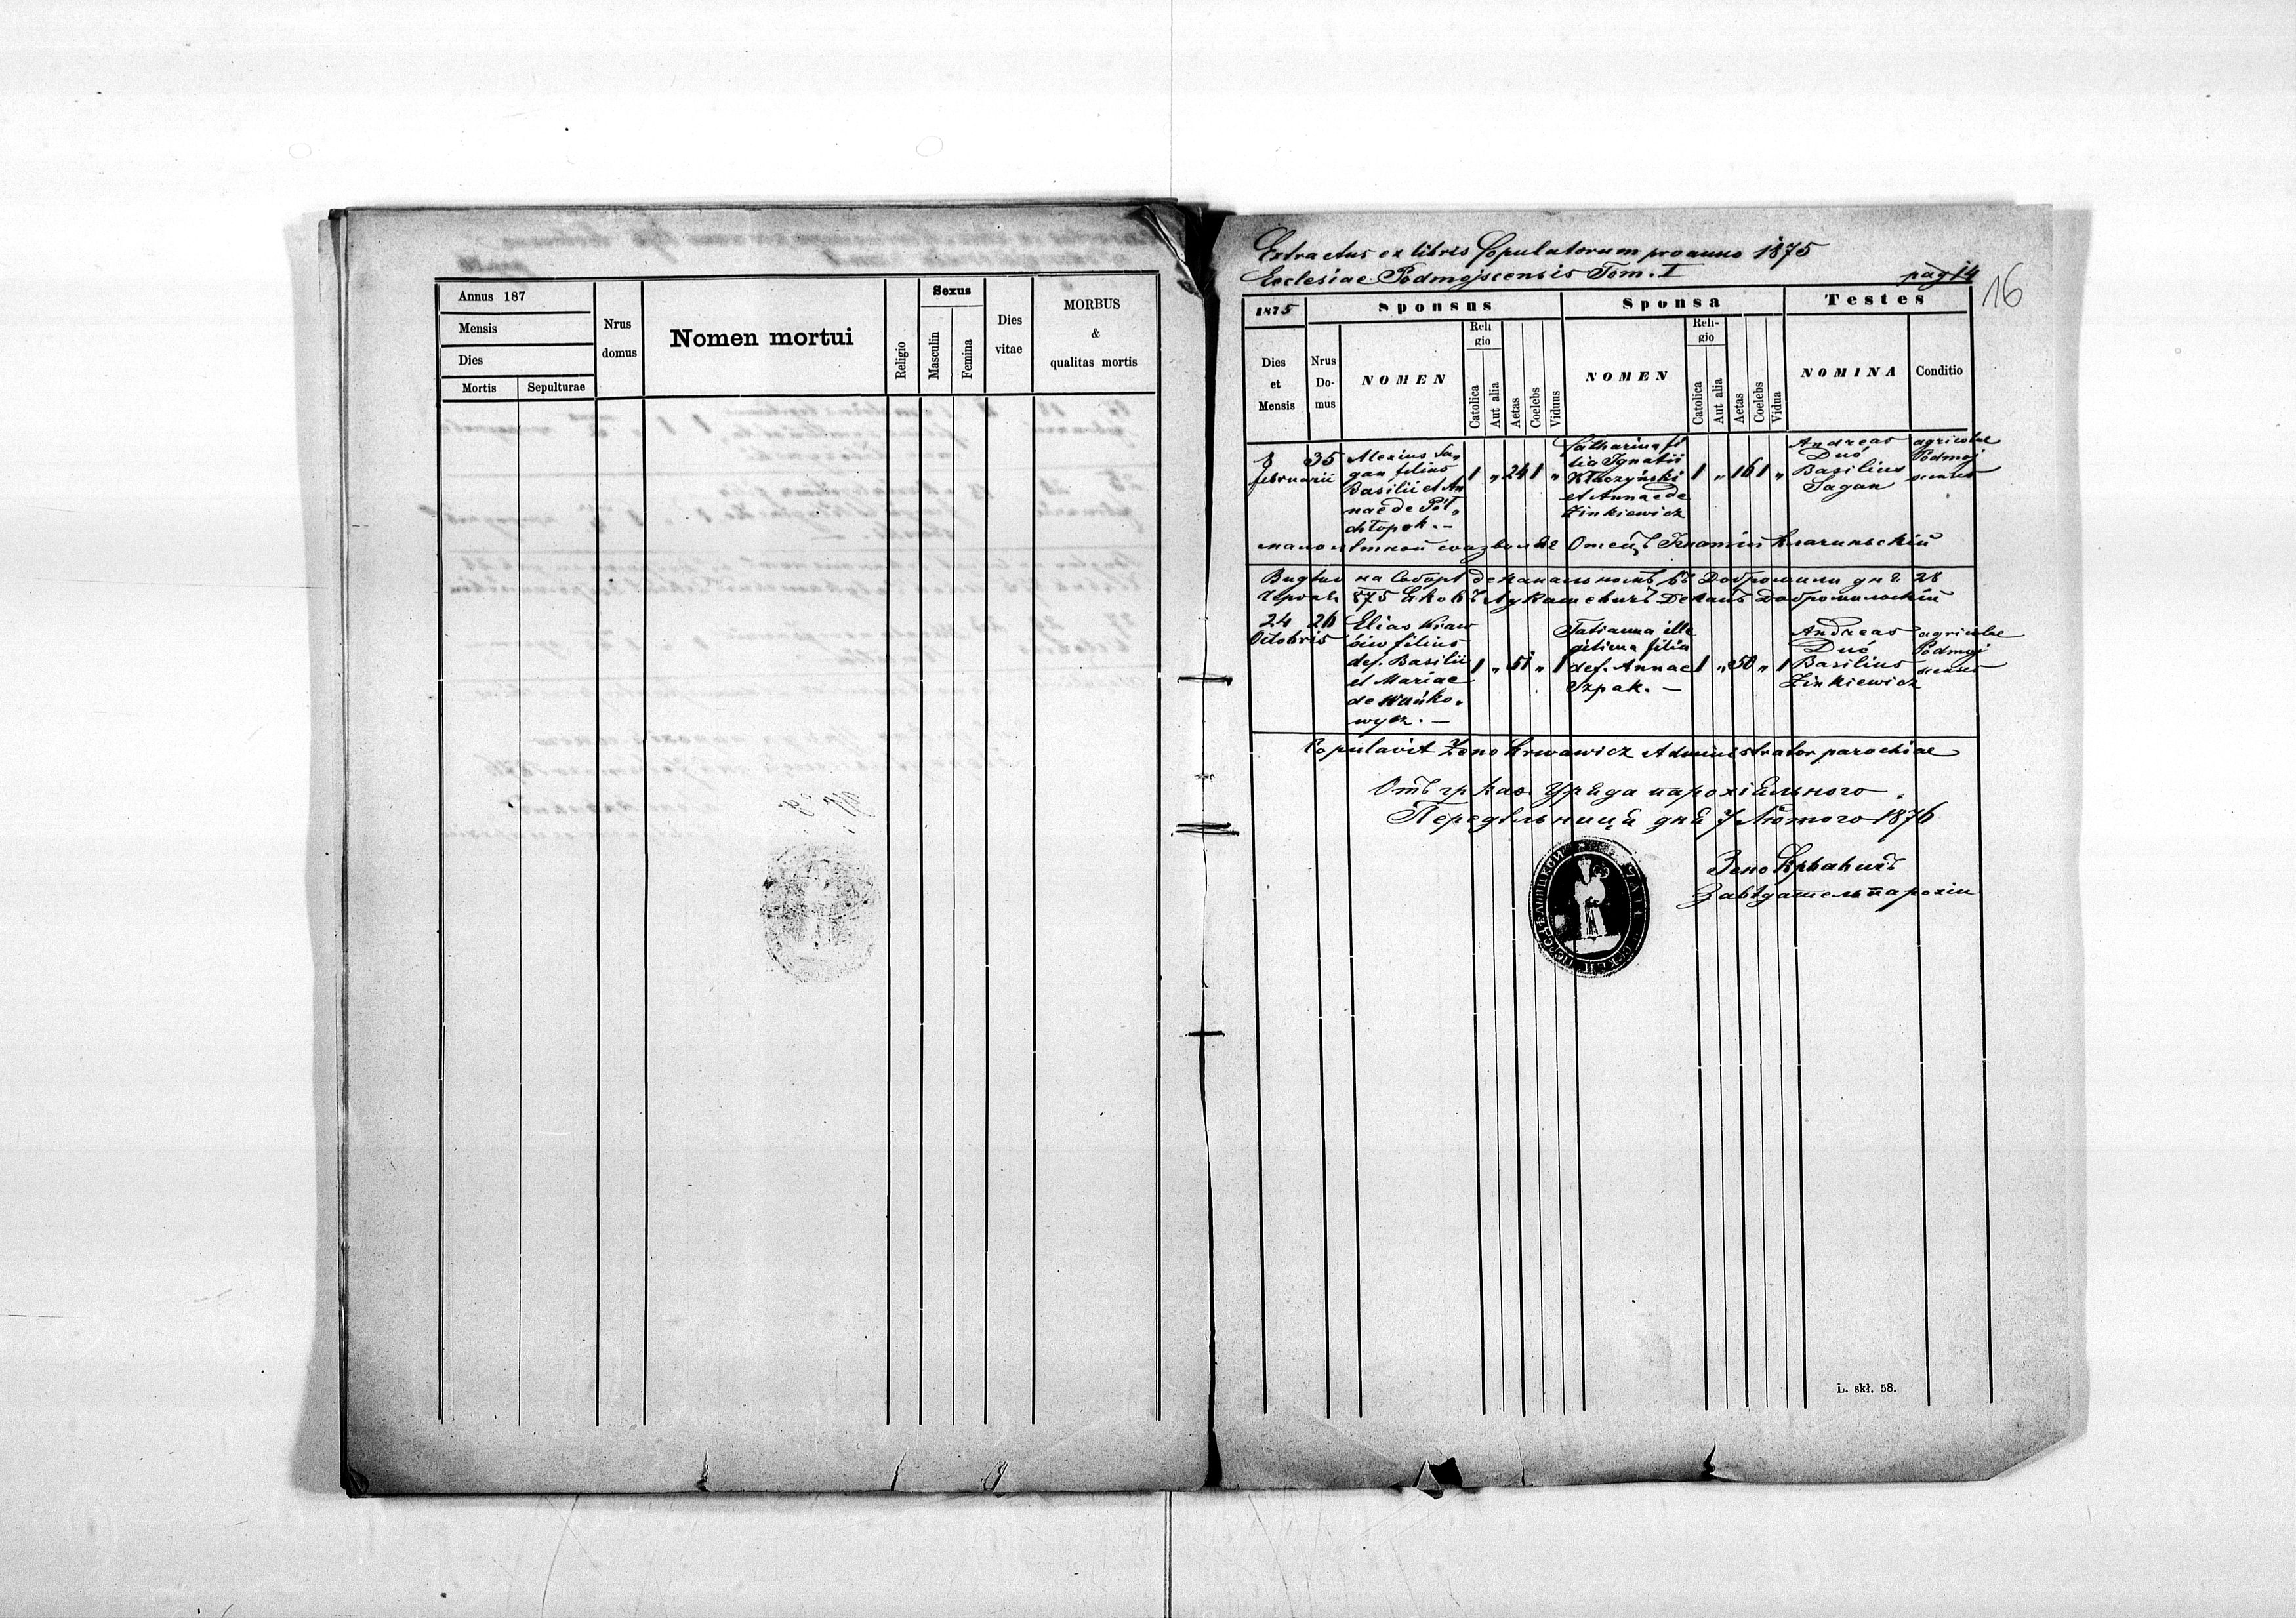 Annus 187
Mensis
Dies
Mortis Sepulturae
Nrus domus
Nomen mortui
Religio
Sexus
Masculin
Femina
Dies vitae
MORBUS
&
qualitas mortis
Extractus ex libris Copulatorum pro anno 1875
Ecclesiae Podmojscensis Tom. I pag 14
16
1875 Sponsus Sponsa Testes
Dies et Mensis
Nrus Domus
NOMEN
Religio
Catolica
Aut alia
Aetas
Coelebs
Viduus
NOMEN
Religio
Catolica
Aut alia
Aetas
Coelebs
Vidua
NOMINA
Conditio
8 februarii
35
Alexius Sa„
gan filius
Basilii et An
nae de Pół„
chłopek. —
1 „ 24 1 „
Catharina fi
lia Ignatii
Kłaczyński
et Annae de
Zinkiewicz
1 „ 16 1 „
Andreas
Duó
Basilius
Sagan
agricolae
Podmoj
scenses
Отецъ Игнатій Клачиньскій
Видѣно на Соборѣ деканальномъ въ Добромили дня 28
Червня 875 Яковъ Лукашевичъ Деканъ Добромильскій
24 Octobris
26
Elias Kraw
ców filius
def. Basilii
et Mariae
de Wańko„
wycz. —
1 „ 51 „ 1
Tatianna ille
gitima filia
def. Annae
Szpak. —
1 „ 50 „ 1
Andreas
Duó
Basilius
Zinkiewicz
agricolae
Podmoj
scenses
Copulavit Zeno Krwawicz Administrator parochiae
Отъ гр. каѳ. Уряда парохіяльного
Передѣльниця дня 7 Лютого 1876
Зено Крвавичъ
Завѣдатель парохіи
L. skł. 58.